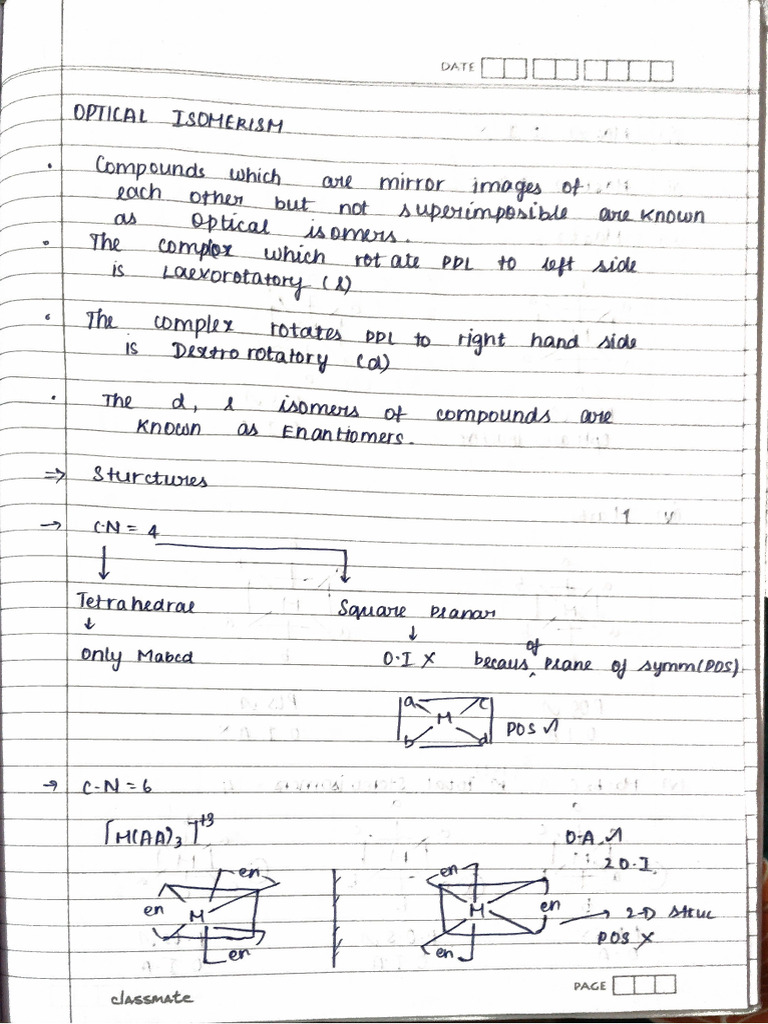 DATE
OPTICAL ISOMERISM
• Compounds which are mirror images of
each other but not superimposible are known
as Optical isomers.
• The complex which rotate PPL to left side
is Laevorotatory (l)
• The complex rotates PPL to right hand side
is Dextro rotatory (d)
• The d, l isomers of compounds are
known as Enantiomers.
⇒ Sturctures
→ C·N = 4
Tetrahedral Square Planar
↓ ↓
Only Mabcd O·I X becaus of Plane of symm(POS)
a c
M
b d POS ✓
→ C-N = 6
[M(AA)3]+3 O·A ✓
∴ 2 O·I.
en en
en M M en → 2-D struc
POS X
en en
PAGE
classmate